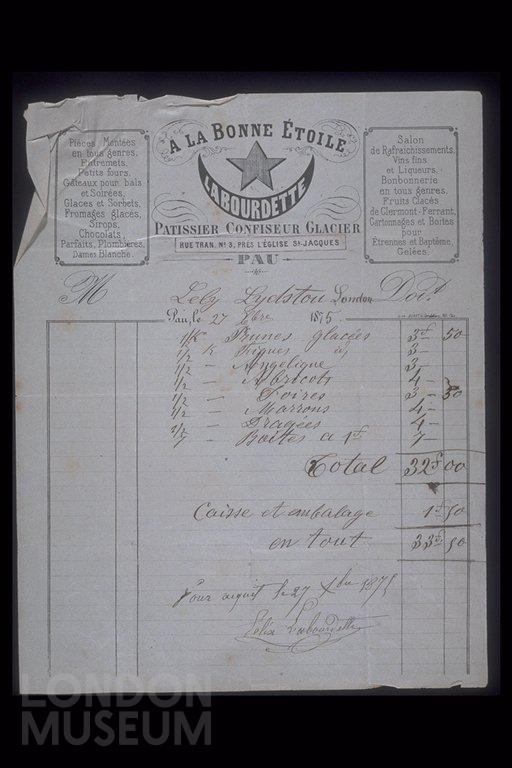 Pièces Montées
en tous genres,
Entremets,
Petits fours,
Gâteaux pour bals
et Soirées,
Glaces et Sorbets,
Fromages glacés,
Sirops,
Chocolats,
Parfaits, Plombières,
Dames Blanche.
A LA BONNE ÉTOILE
LABOURDETTE
PATISSIER CONFISEUR GLACIER
RUE TRAN, Nº 3, PRÈS L'ÉGLISE St-JACQUES
PAU
Salon
de Rafraichissements,
Vins fins
et Liqueurs,
Bonbonnerie
en tous genres,
Fruits Glacés
de Clermont-Ferrant,
Cartonnages et Boites
pour
Étrennes et Baptême,
Gelées.
M Lely Lydston London Doit
Pau, le 27 Xbre 1875
1/K Prunes glacées 3f 50
1/2 K Figues id 3 —
1/2 — Angelique 3 —
1/2 — Abricots 4 —
1/2 — Poires 3 — 50
1/2 — Marrons 4 —
2/2 — Dragées 4 —
7 — Boites a 1f 7 —
Total 32f 00
Caisse et anbalage 1f 50
en tout 33f 50
Pour aquit le 27 Xbre 1875
Félix Labourdette
LONDON
MUSEUM